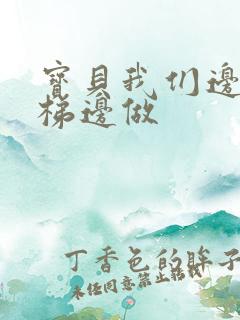 寳貝我们邊
梯邊做
丁香色的眸子
未经同意禁止转载